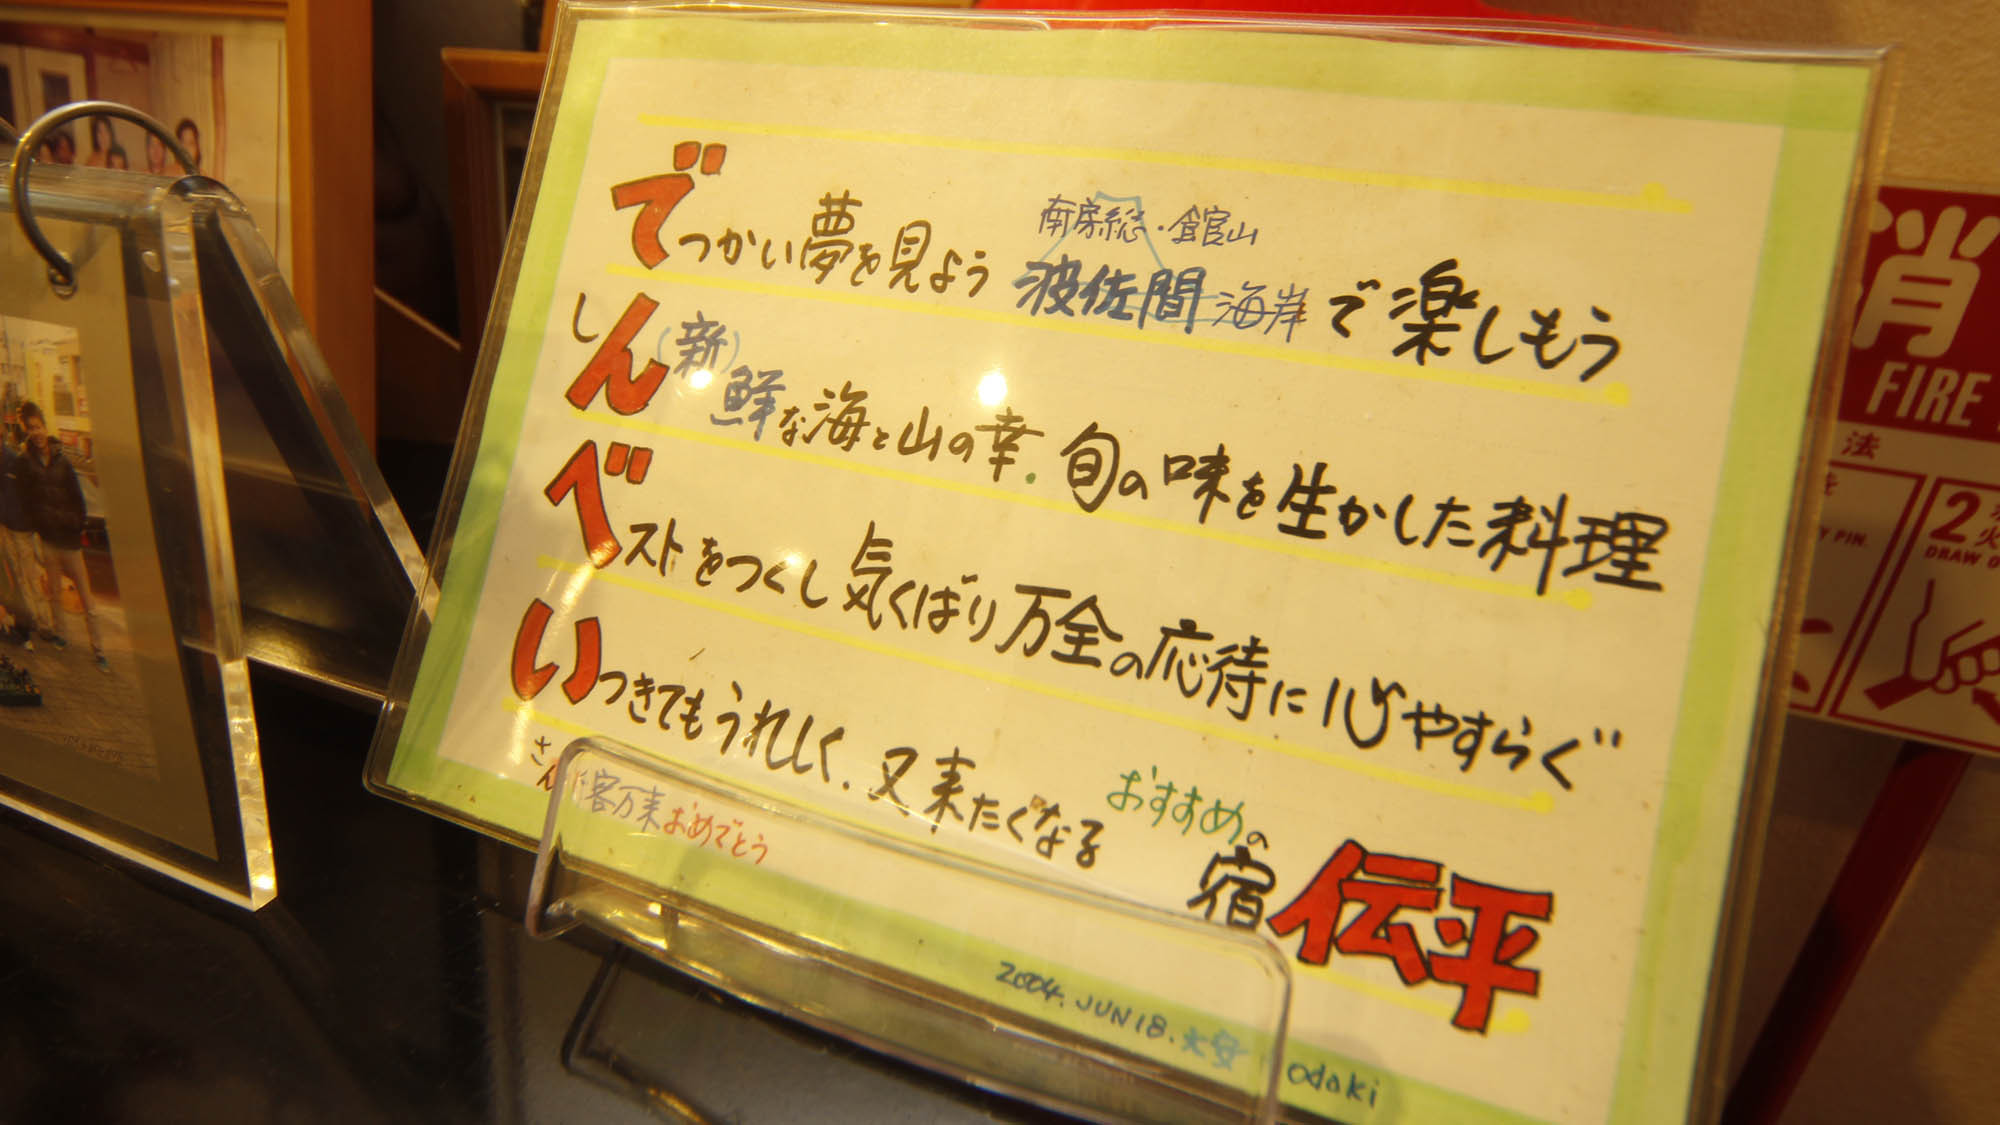 南房総・館山
でっかい夢を見よう 波佐間海岸で楽しもう
しん(新)鮮な海と山の幸.旬の味を生かした料理
ベストをつくし気くばり万全の応待に心やすらぐ
いつきてもうれしく.又来たくなる おすすめの宿 伝平
さん
客万来おめでとう
2004.JUN18.大安
odaki
消
FIRE
法
PIN.
2
火
DRAW